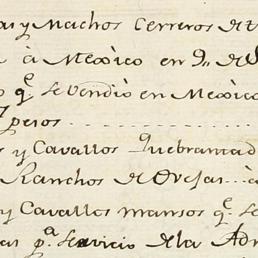 y Machos Cerreros de
a Mexico en
q.e se vendio en Mexico
pesos
y Cavallos Quebrantad
Ranchos de Ovejas
y Cavallos mansos q.e se
p.a servicio de la Adm